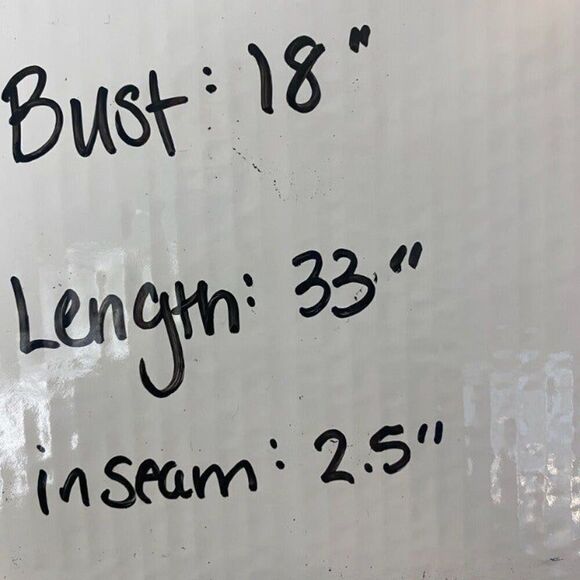 Bust: 18"
Length: 33"
inseam: 2.5"